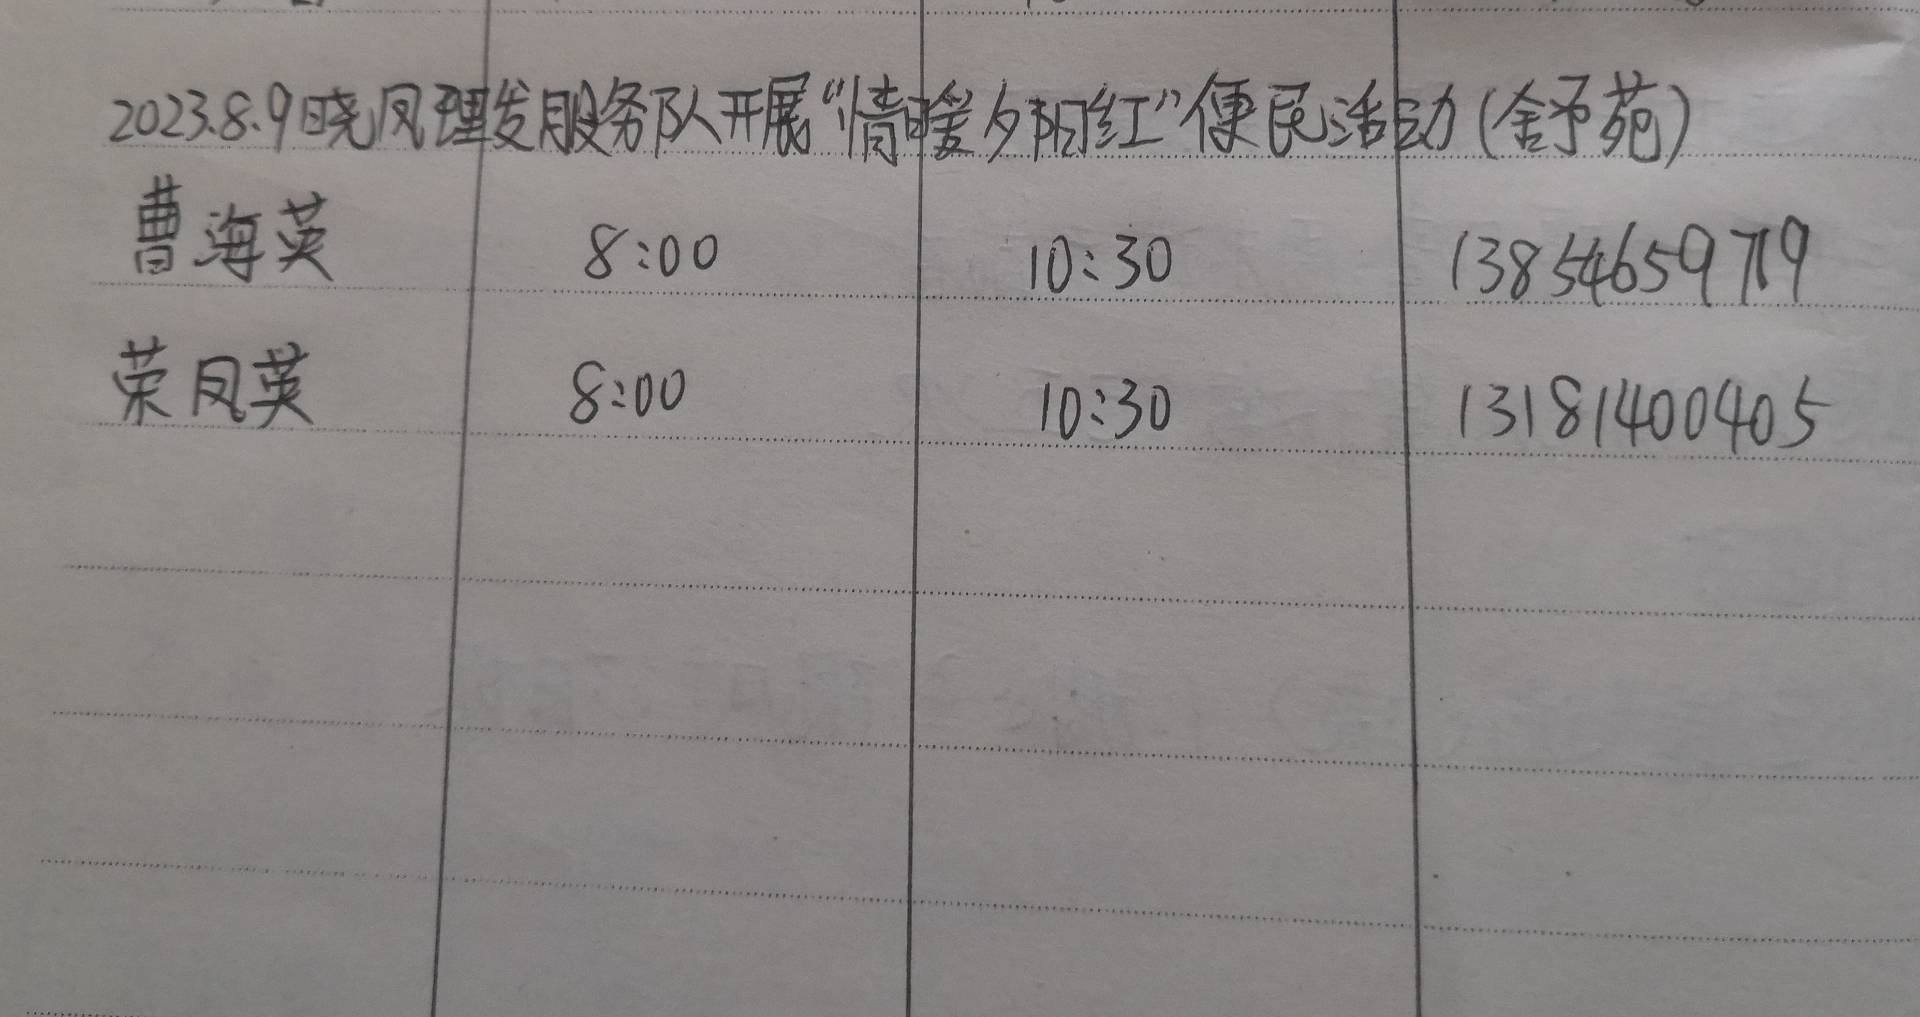 2023.8.9晓凤理发服务队开展“情暖夕阳红”便民活动(舒苑)
曹海英 8:00 10:30 13854659719
荣凤英 8:00 10:30 13181400405